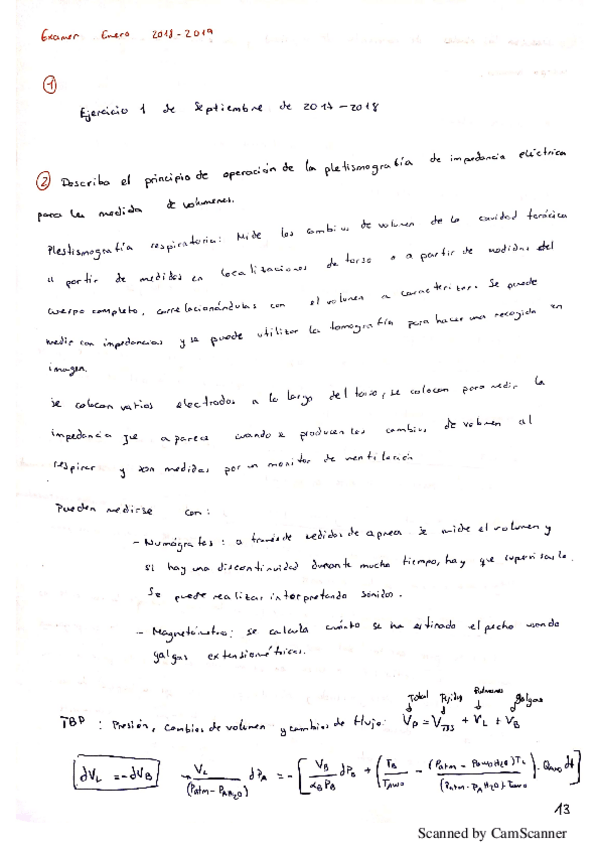 Examen Enero 2018-2019
1
Ejercicio 1 de Septiembre de 2017-2018
2 Describa el principio de operación de la pletismografía de impedancia eléctrica
para la medida de volumenes.
Plestismografía respiratoria: Mide los cambios de volumen de la cavidad torácica
a partir de medidas en localizaciones de torso o a partir de medidas del
cuerpo completo, correlacionándolas con el volumen a caracterizar. Se puede
medir con impedancias y se puede utilizar la tomografía para hacer una recogida en
imagen.
Se colocan varios electrodos a lo largo del torso, se colocan para medir la
impedancia que aparece cuando se producen los cambios de volumen al
respirar y son medidas por un monitor de ventilación
Pueden medirse con:
- Numógrafos: a través de medidas de apnea se mide el volumen y
si hay una discontinuidad durante mucho tiempo, hay que supervisarlo.
Se puede realizar interpretando sonidos.
- Magnetómetro: se calcula cuánto se ha estirado el pecho usando
galgas extensiométricas.
Total Tejidos Pulmones
TBP: Presión, cambios de volumen y cambios de flujo: Vp = VTJS + VL + VB
dVL = -dVB → VL/(Patm - PAH2O) dPA = -[VB/(αB PB) dPB + (TB/TAWO - (Patm - PAWOH2O)TL/(Patm - PAH2O)TAWO) · QAWO dt]
13
Scanned by CamScanner